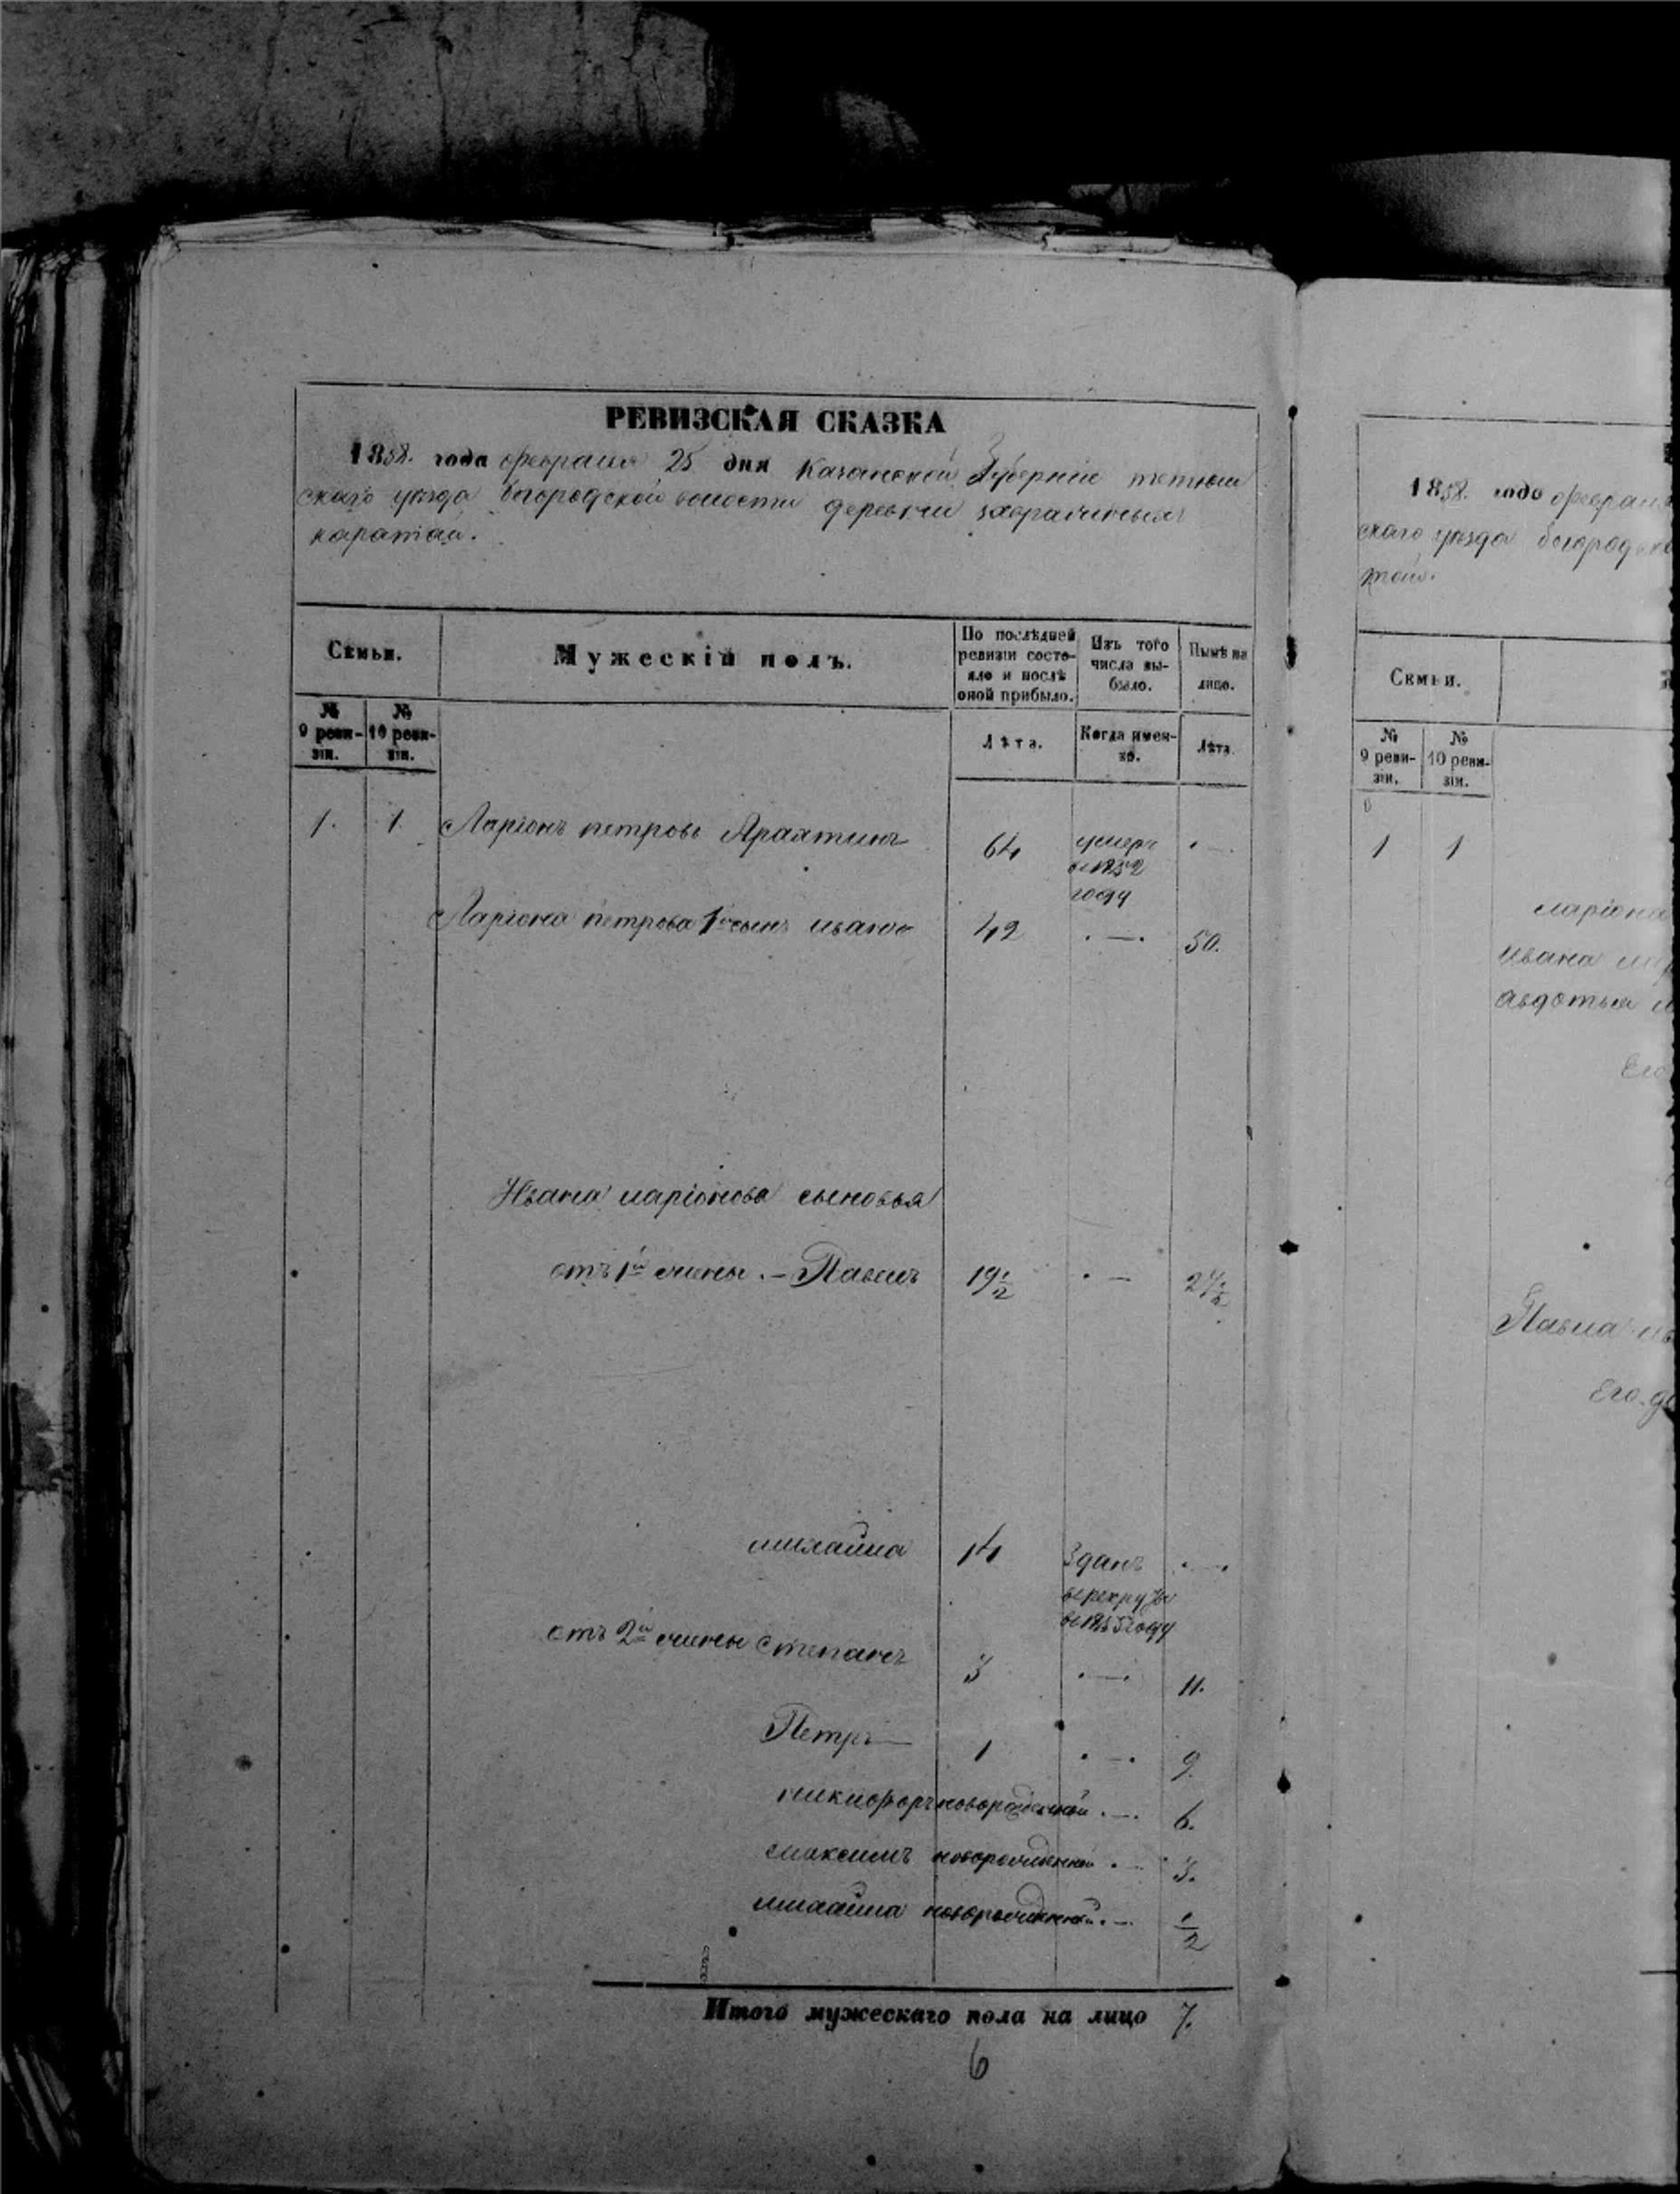 РЕВИЗСКАЯ СКАЗКА
1858. года февраля 25 дня Казанской Губернии тетюш
скаго уѣзда богородской волости деревни
каратай.
Семьи.
Мужескій полъ.
По послѣдней ревизіи состо-
яло и послѣ оной прибыло.
Изъ того числа вы-
было.
Нынѣ на лицо.
№ 9 реви-
зіи.
№ 10 реви-
зіи.
Лѣта.
Когда имен-
но.
Лѣта.
1. 1 Ларіонъ петровъ 64 умеръ . —
въ 1852
году
Ларіона петрова 1й сынъ иванъ 42 . — . 50.
Ивана ларіонова сыновья
отъ 1й жены . — Павелъ 19 1/2 . — 27 1/2
михайла 14 Зданъ . — .
в рекруты
въ 1855 году
отъ 2й жены Степанъ 3 . — . 11.
Петръ 1 . — . 9.
никифоръ новорожденной . — . 6.
максимъ новорожденной . — 3.
михайла новорожденной . — 1/2
Итого мужескаго пола на лицо 7.
6
1858. года феврал
скаго уѣзда богородско
тай.
Семьи.
№ 9 реви-
зіи.
№ 10 реви-
зіи.
1 1
ларіона
ивана лар
авдотья
Его
Павла ив
Его до